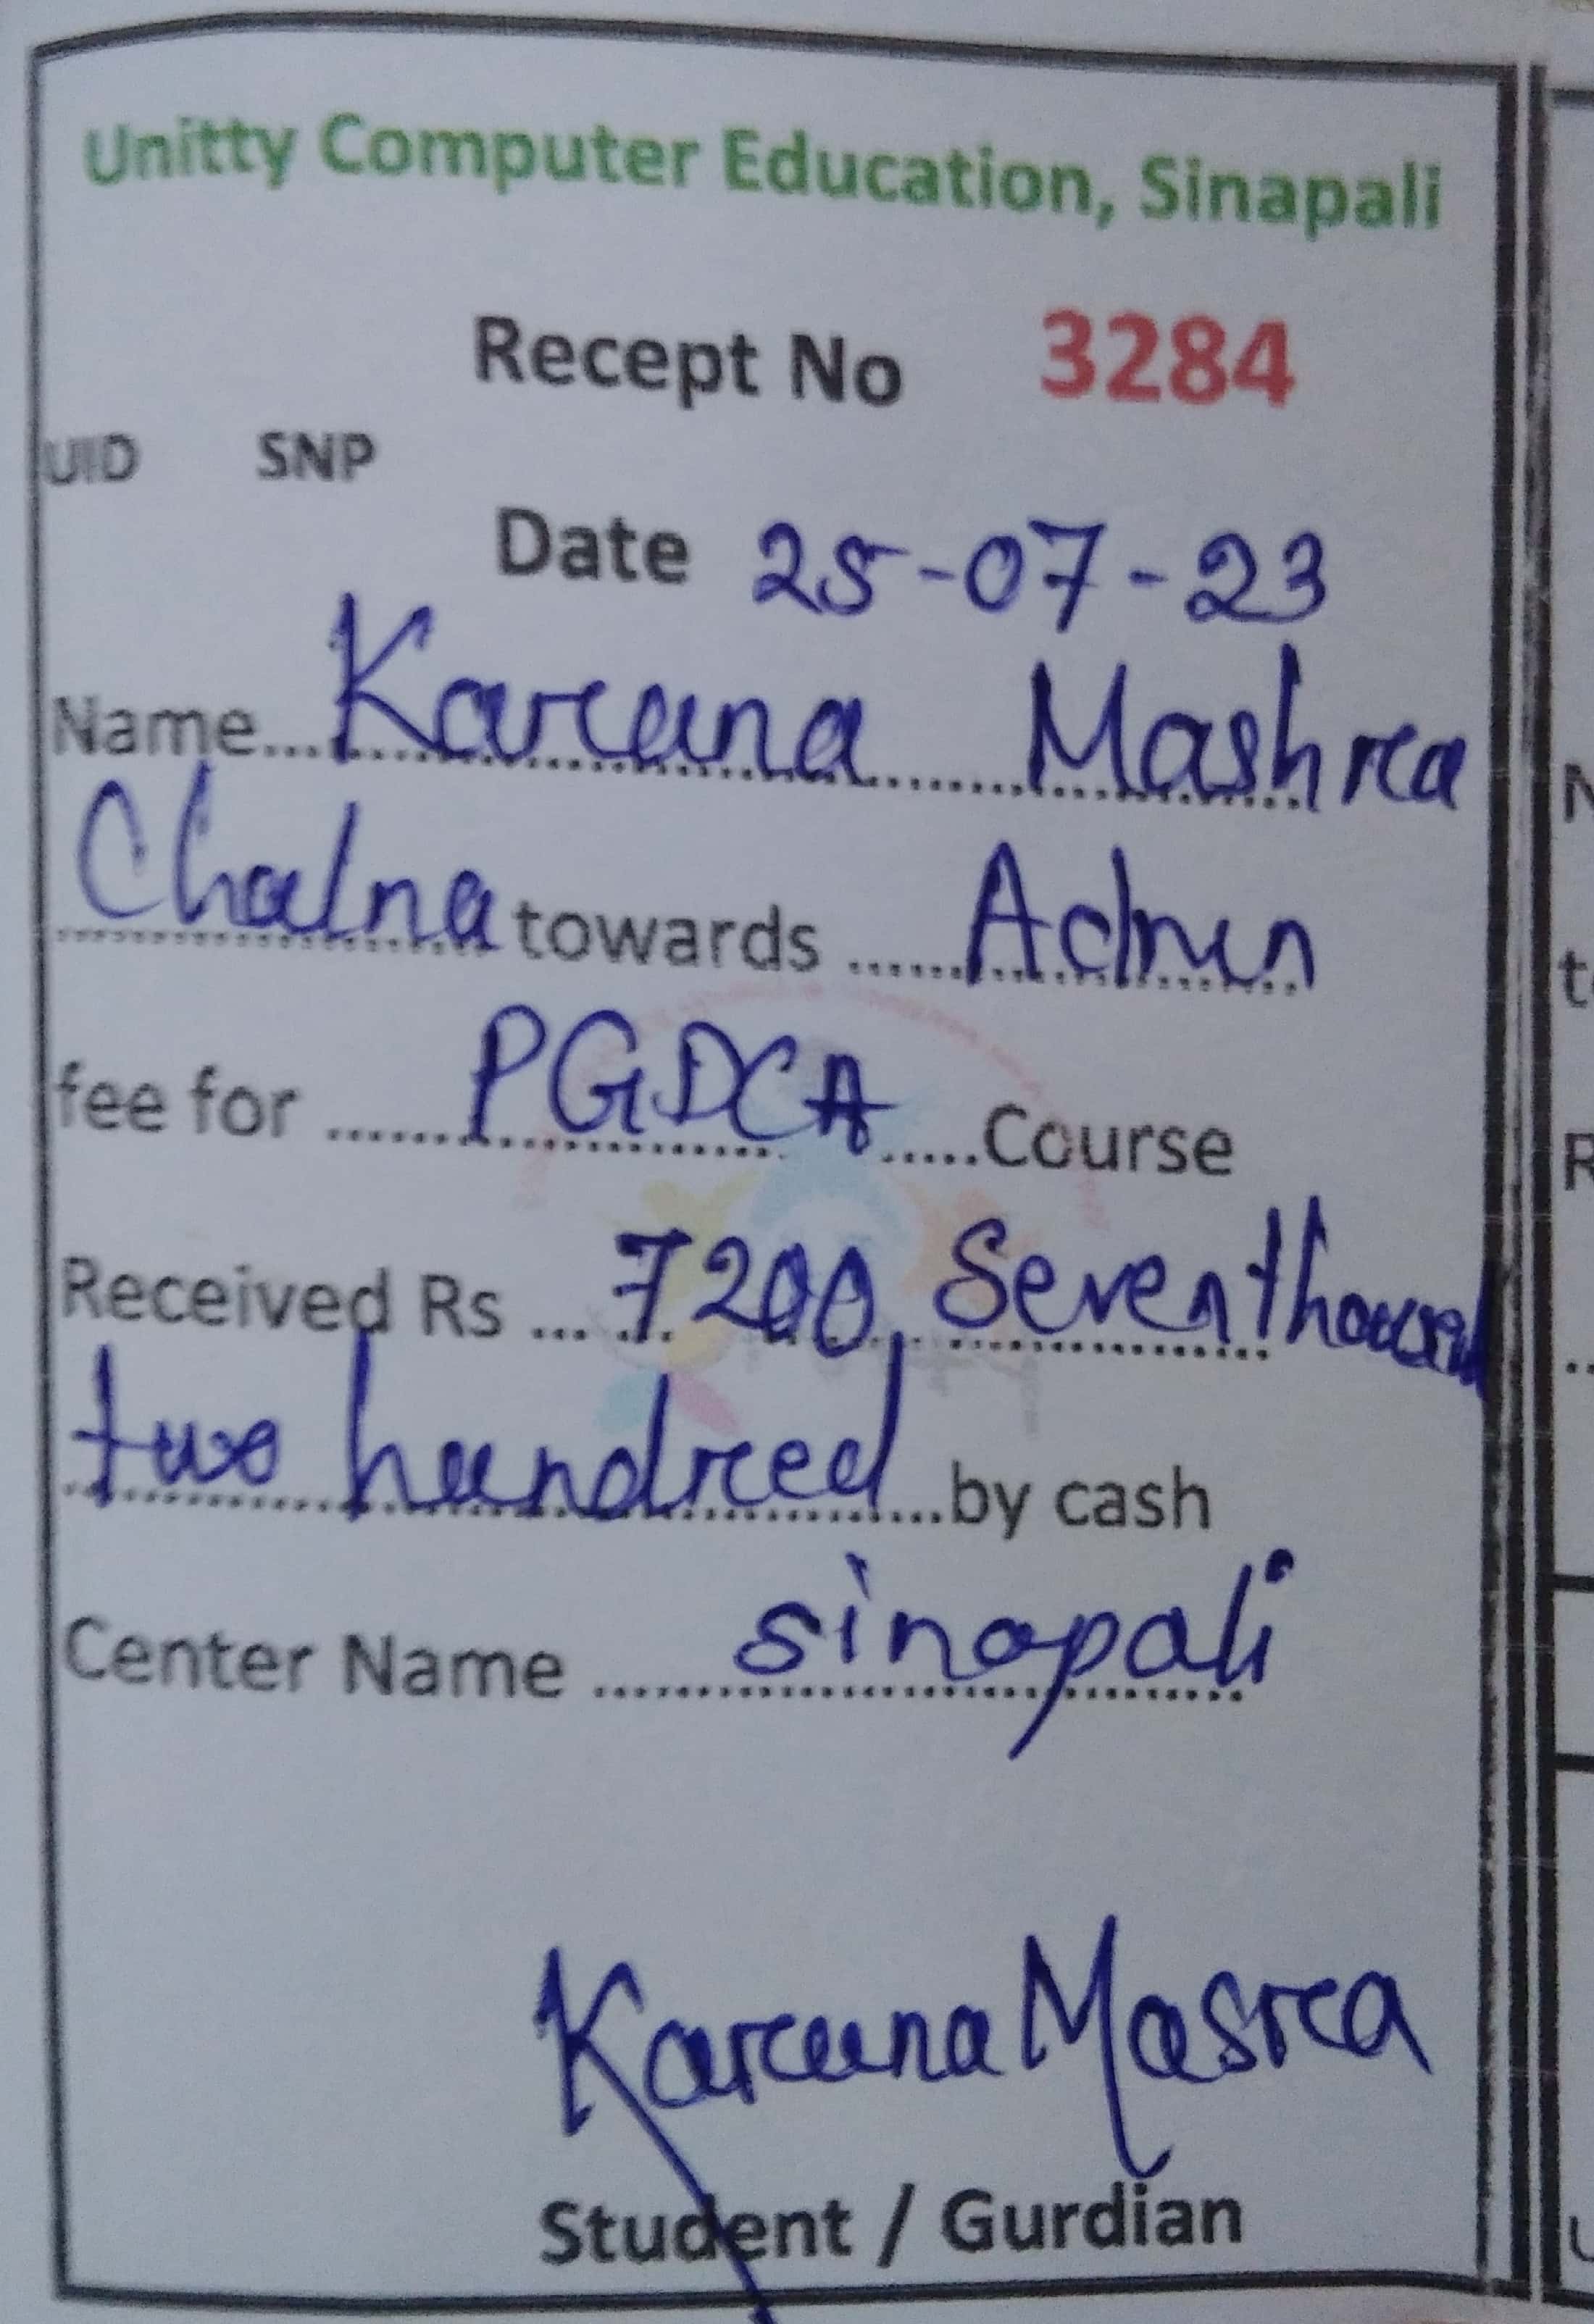 Unitty Computer Education, Sinapali
Recept No 3284
UID SNP
Date 25-07-23
Name... Karuna Mashra
Chalna towards ...... Admn
fee for ...... PGDCA ......Course
Received Rs ... 7200, Seven thousand
two hundred ...by cash
Center Name ...... sinapali
Karuna Masra
Student / Gurdian